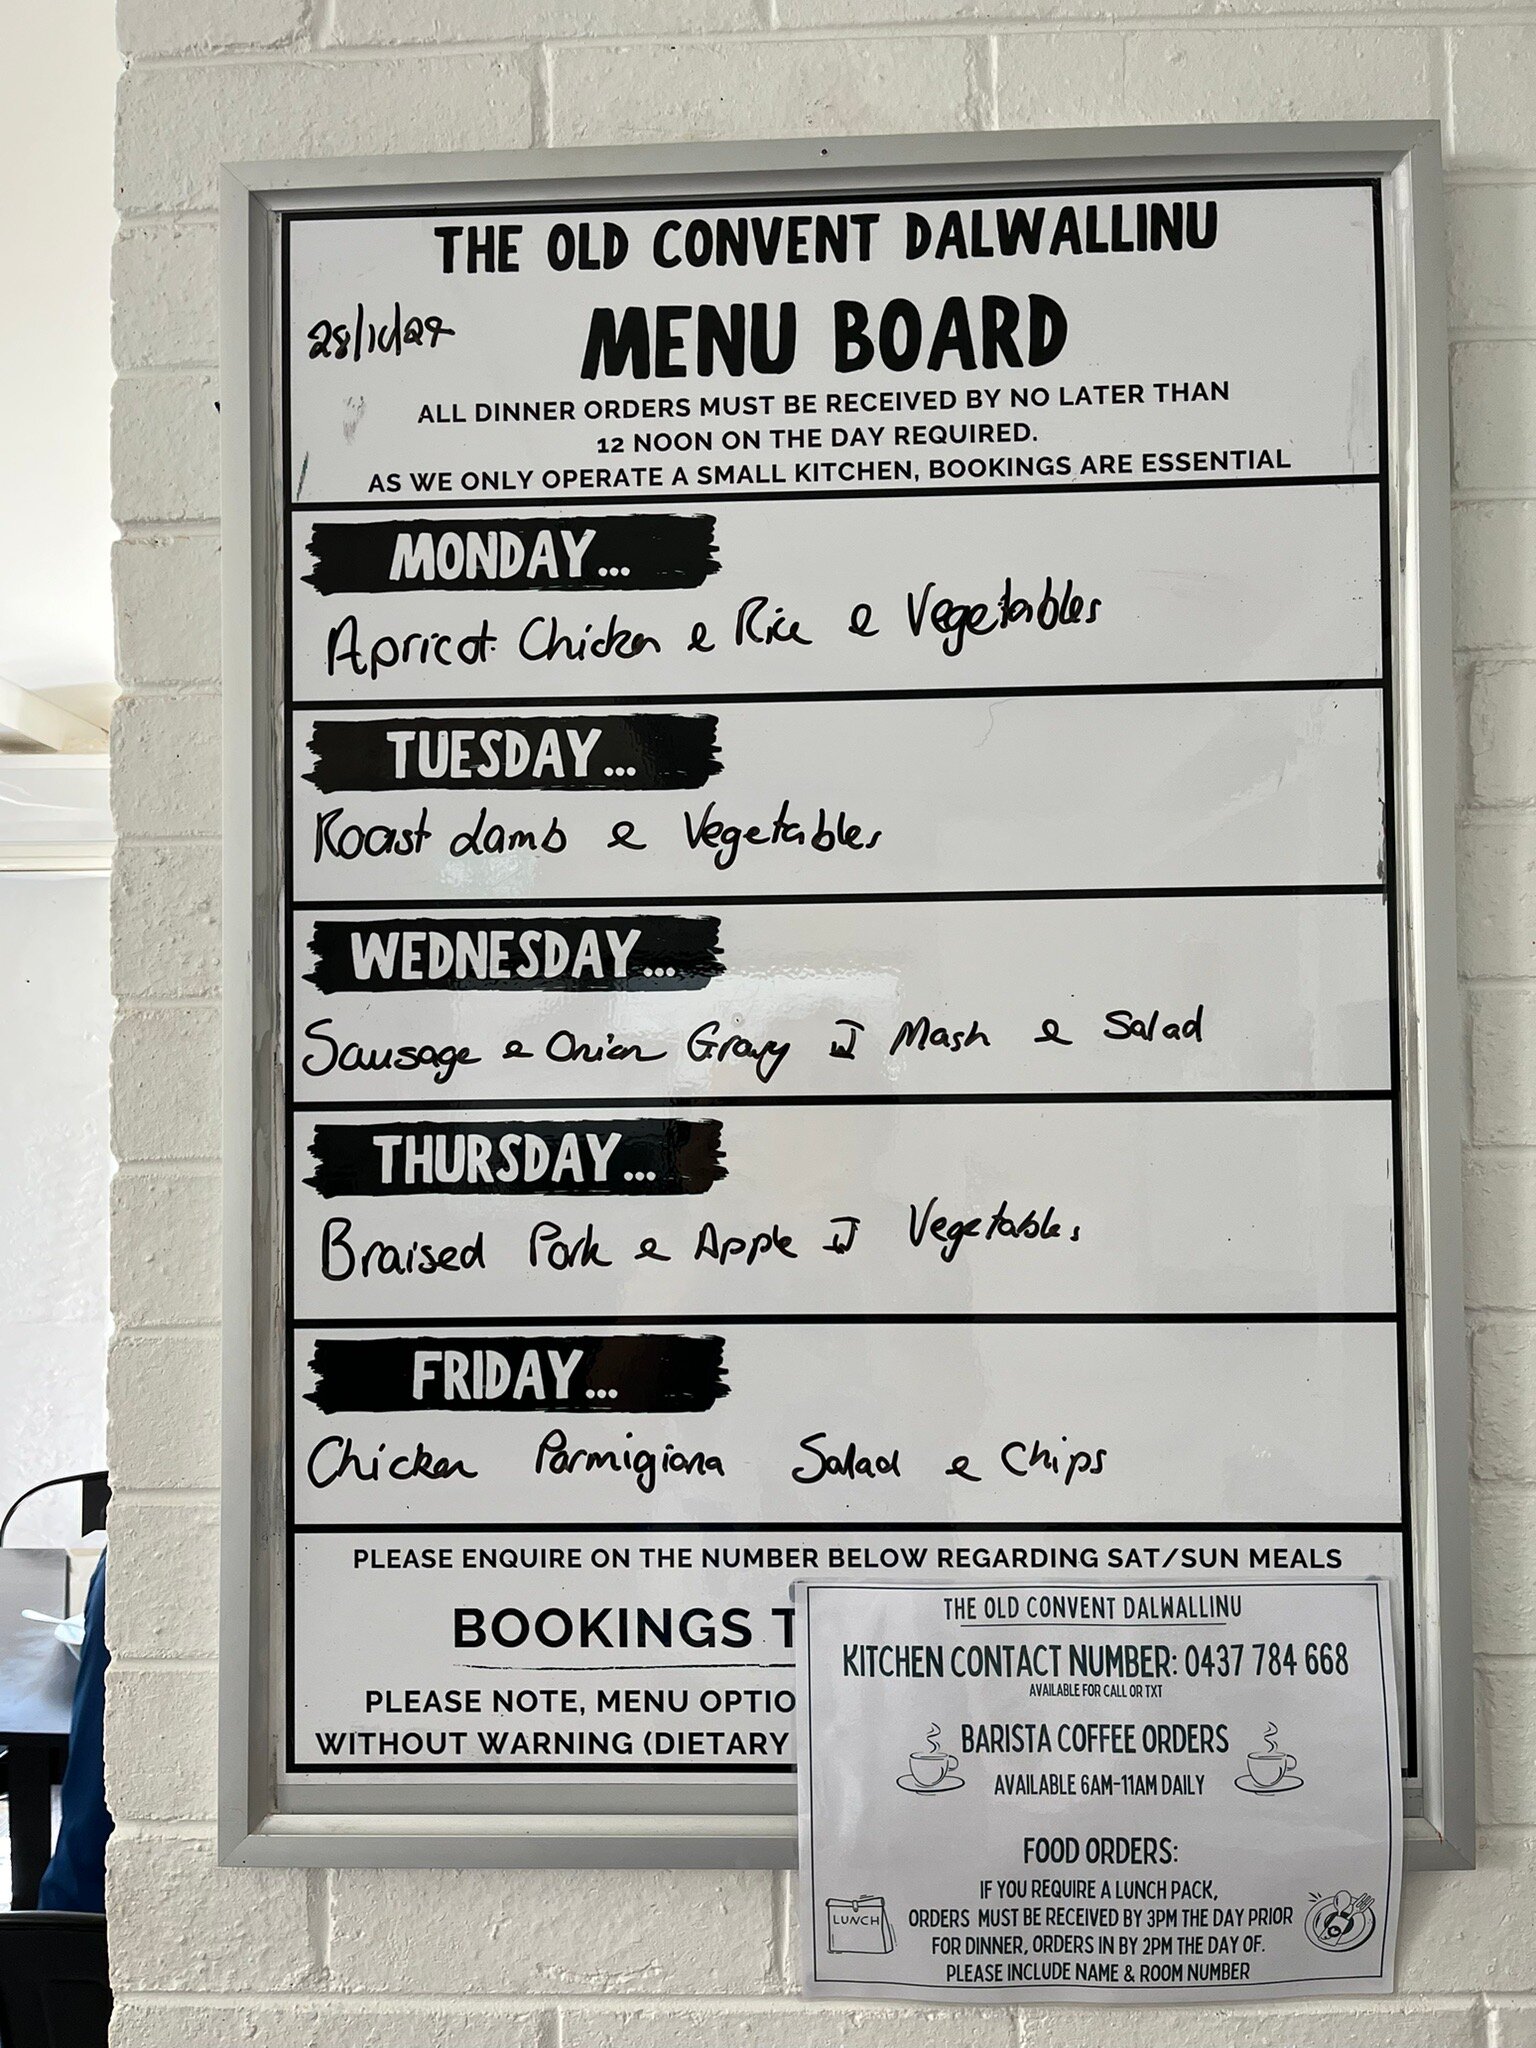 THE OLD CONVENT DALWALLINU
28/10/24
MENU BOARD
ALL DINNER ORDERS MUST BE RECEIVED BY NO LATER THAN
12 NOON ON THE DAY REQUIRED.
AS WE ONLY OPERATE A SMALL KITCHEN, BOOKINGS ARE ESSENTIAL
MONDAY...
Apricot Chicken & Rice & Vegetables
TUESDAY...
Roast Lamb & Vegetables
WEDNESDAY...
Sausage & Onion Gravy Mash & Salad
THURSDAY...
Braised Pork & Apple Vegetables
FRIDAY...
Chicken Parmigiana Salad & Chips
PLEASE ENQUIRE ON THE NUMBER BELOW REGARDING SAT/SUN MEALS
BOOKINGS T
PLEASE NOTE, MENU OPTIO
WITHOUT WARNING (DIETARY
THE OLD CONVENT DALWALLINU
KITCHEN CONTACT NUMBER: 0437 784 668
AVAILABLE FOR CALL OR TXT
BARISTA COFFEE ORDERS
AVAILABLE 6AM-11AM DAILY
FOOD ORDERS:
IF YOU REQUIRE A LUNCH PACK,
LUNCH
ORDERS MUST BE RECEIVED BY 3PM THE DAY PRIOR
FOR DINNER, ORDERS IN BY 2PM THE DAY OF.
PLEASE INCLUDE NAME & ROOM NUMBER